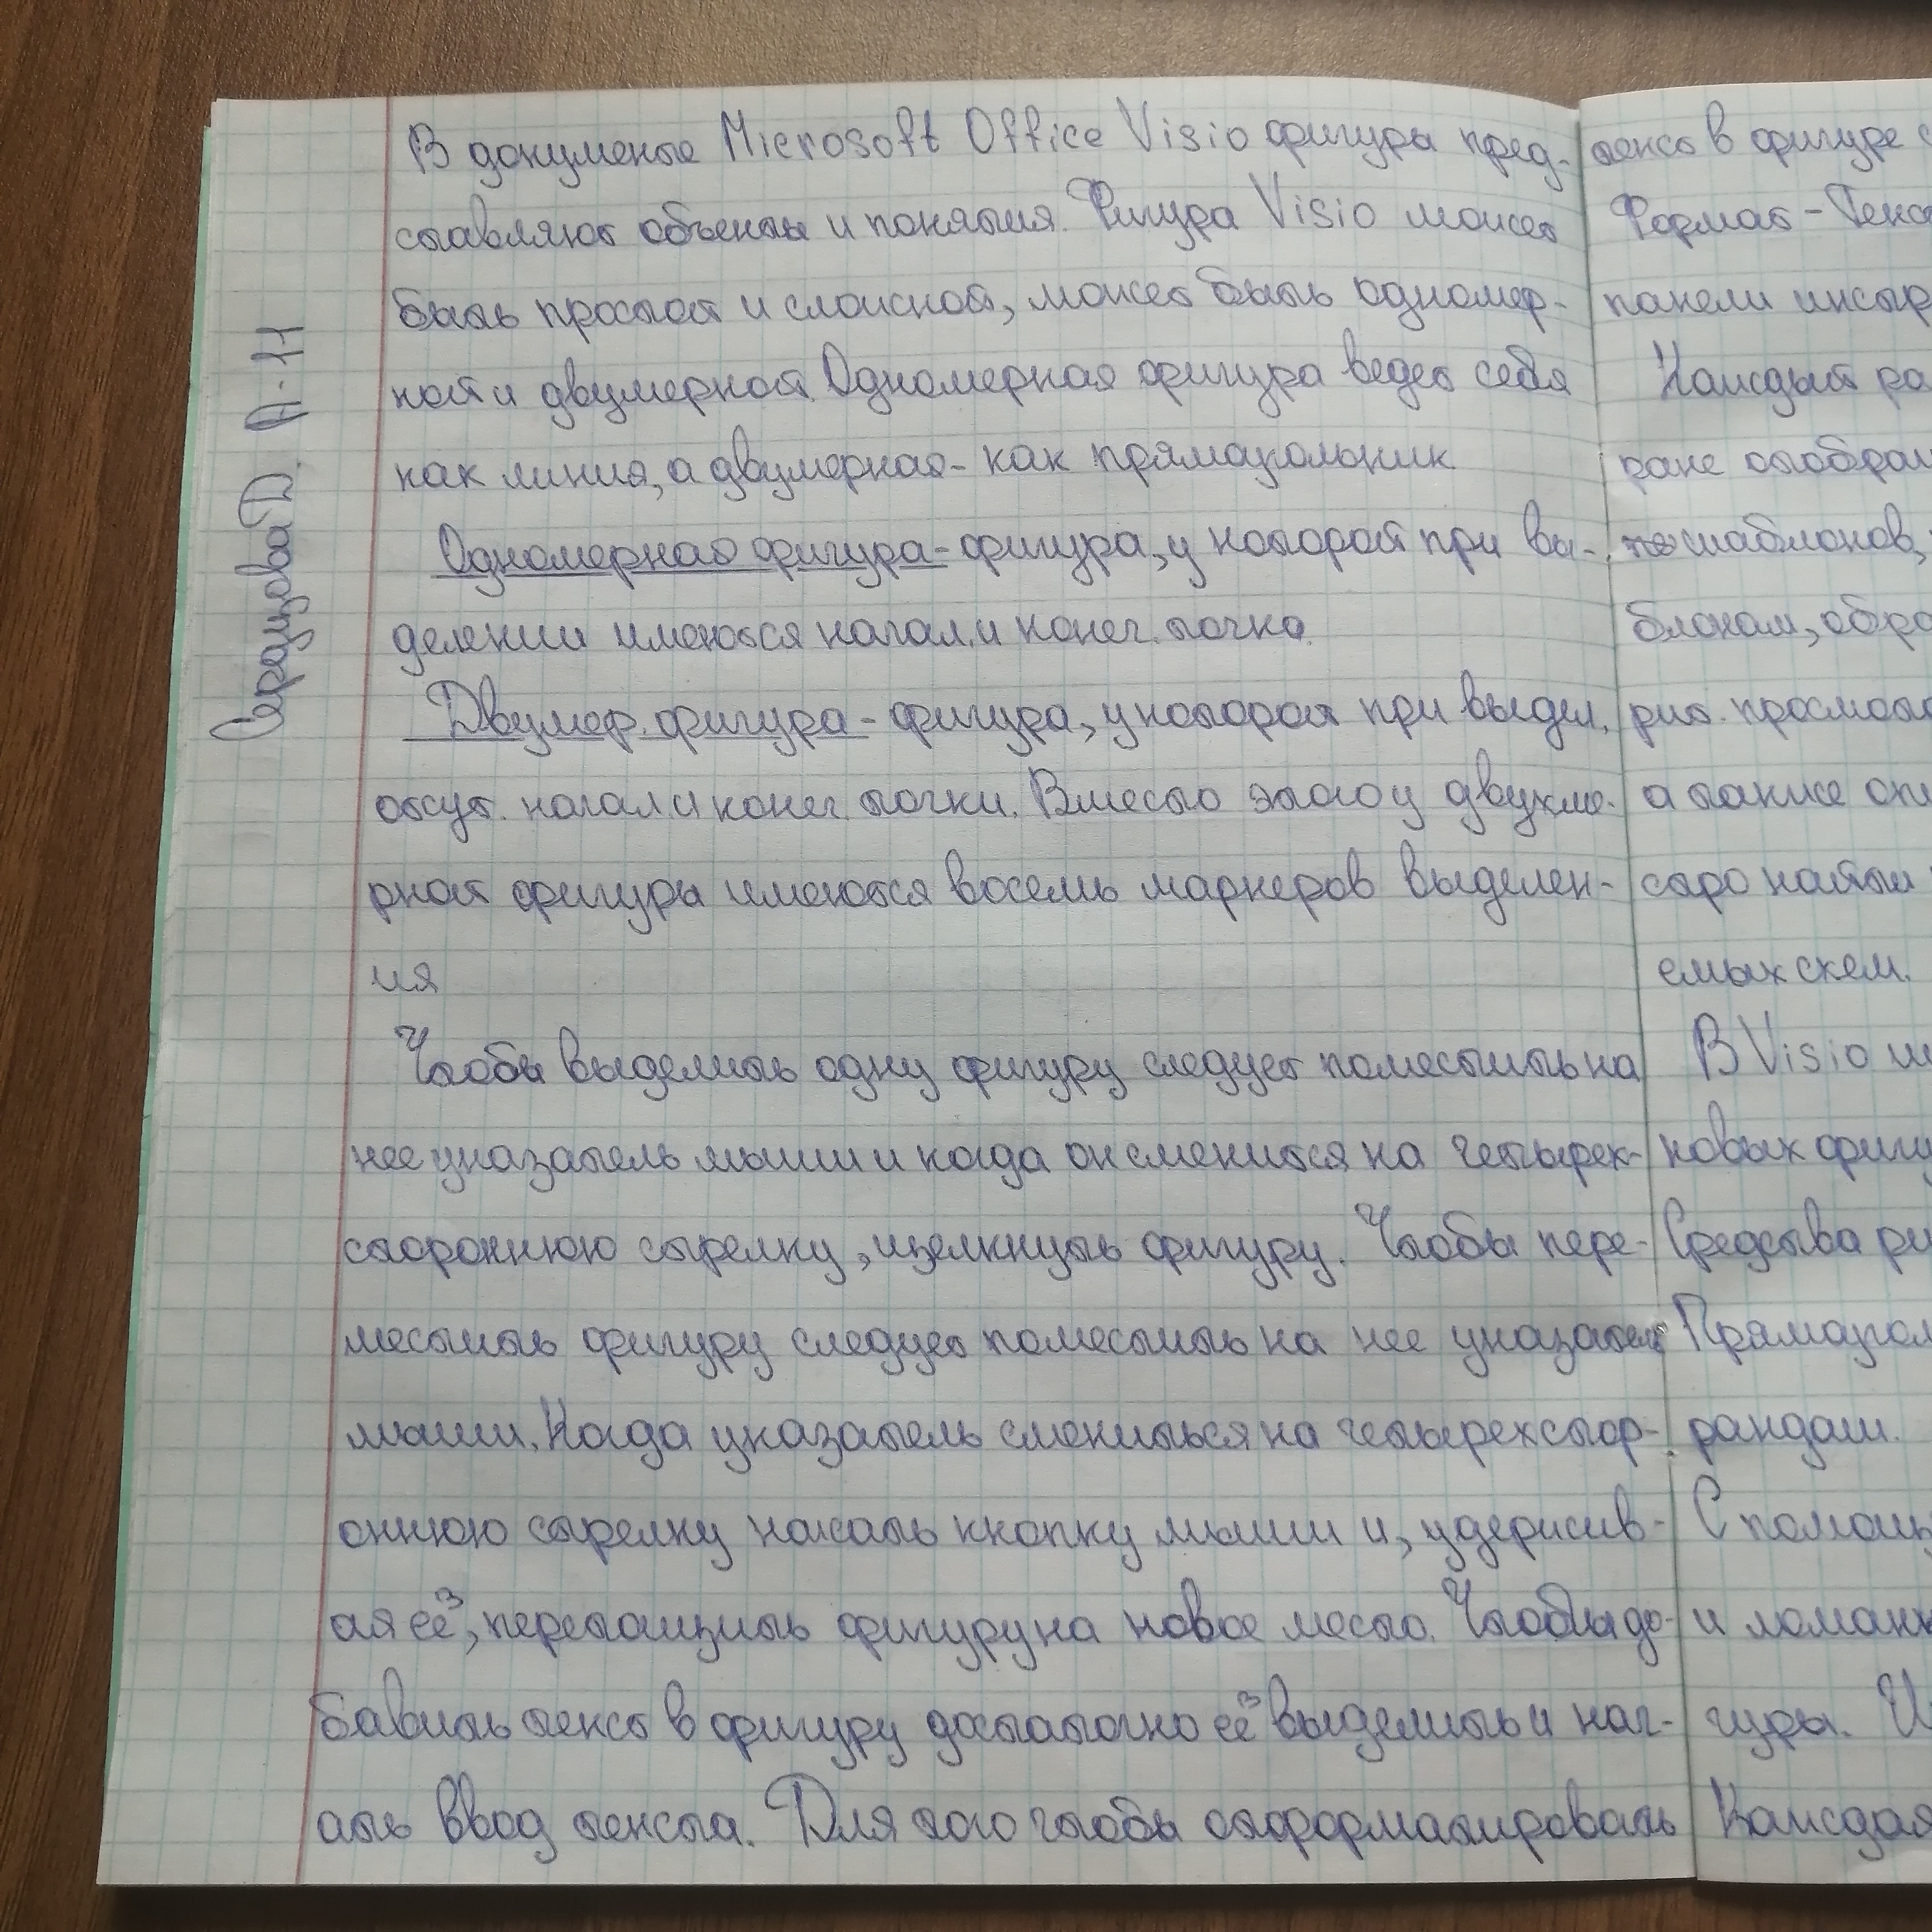 Серазцова D. А-11
В документе Microsoft Office Visio фигуры пред-
ставляют объекты и понятия. Фигура Visio может
быть простой и сложной, может быть одномер-
ной и двумерной. Одномерная фигура ведет себя
как линия, а двумерная - как прямоугольник
Одномерная фигура - фигура, у которой при вы-
делении имеются начал. и конеч. точка.
Двумер. фигура - фигура, у которой при выдел.
отсут. начал. и конеч. точки. Вместо этого у двухме-
рной фигуры имеются восемь маркеров выделен-
ия
Чтобы выделить одну фигуру следует поместить на
нее указатель мыши и когда он сменится на четырех-
стороннюю стрелку, щелкнуть фигуру. Чтобы пере-
местить фигуру следует поместить на нее указатель
мыши. Когда указатель смениться на четырехстор-
оннюю стрелку нажать кнопку мыши и, удержив-
ая её, перетащить фигуру на новое место. Чтобы до-
бавить текст в фигуру достаточно её выделить и нач-
ать ввод текста. Для того чтобы отформатировать
текст в фигуре
Формат - Текс
панели инстр
Каждый ра
ране отображ
шаблонов,
блонам, обра
рит. просмот
а также опи
стро найти
емых схем.
В Visio
новых фигу
Средства ри
Прямоугол
рандаш.
С помощь
и ломан
гуры. И
Каждая